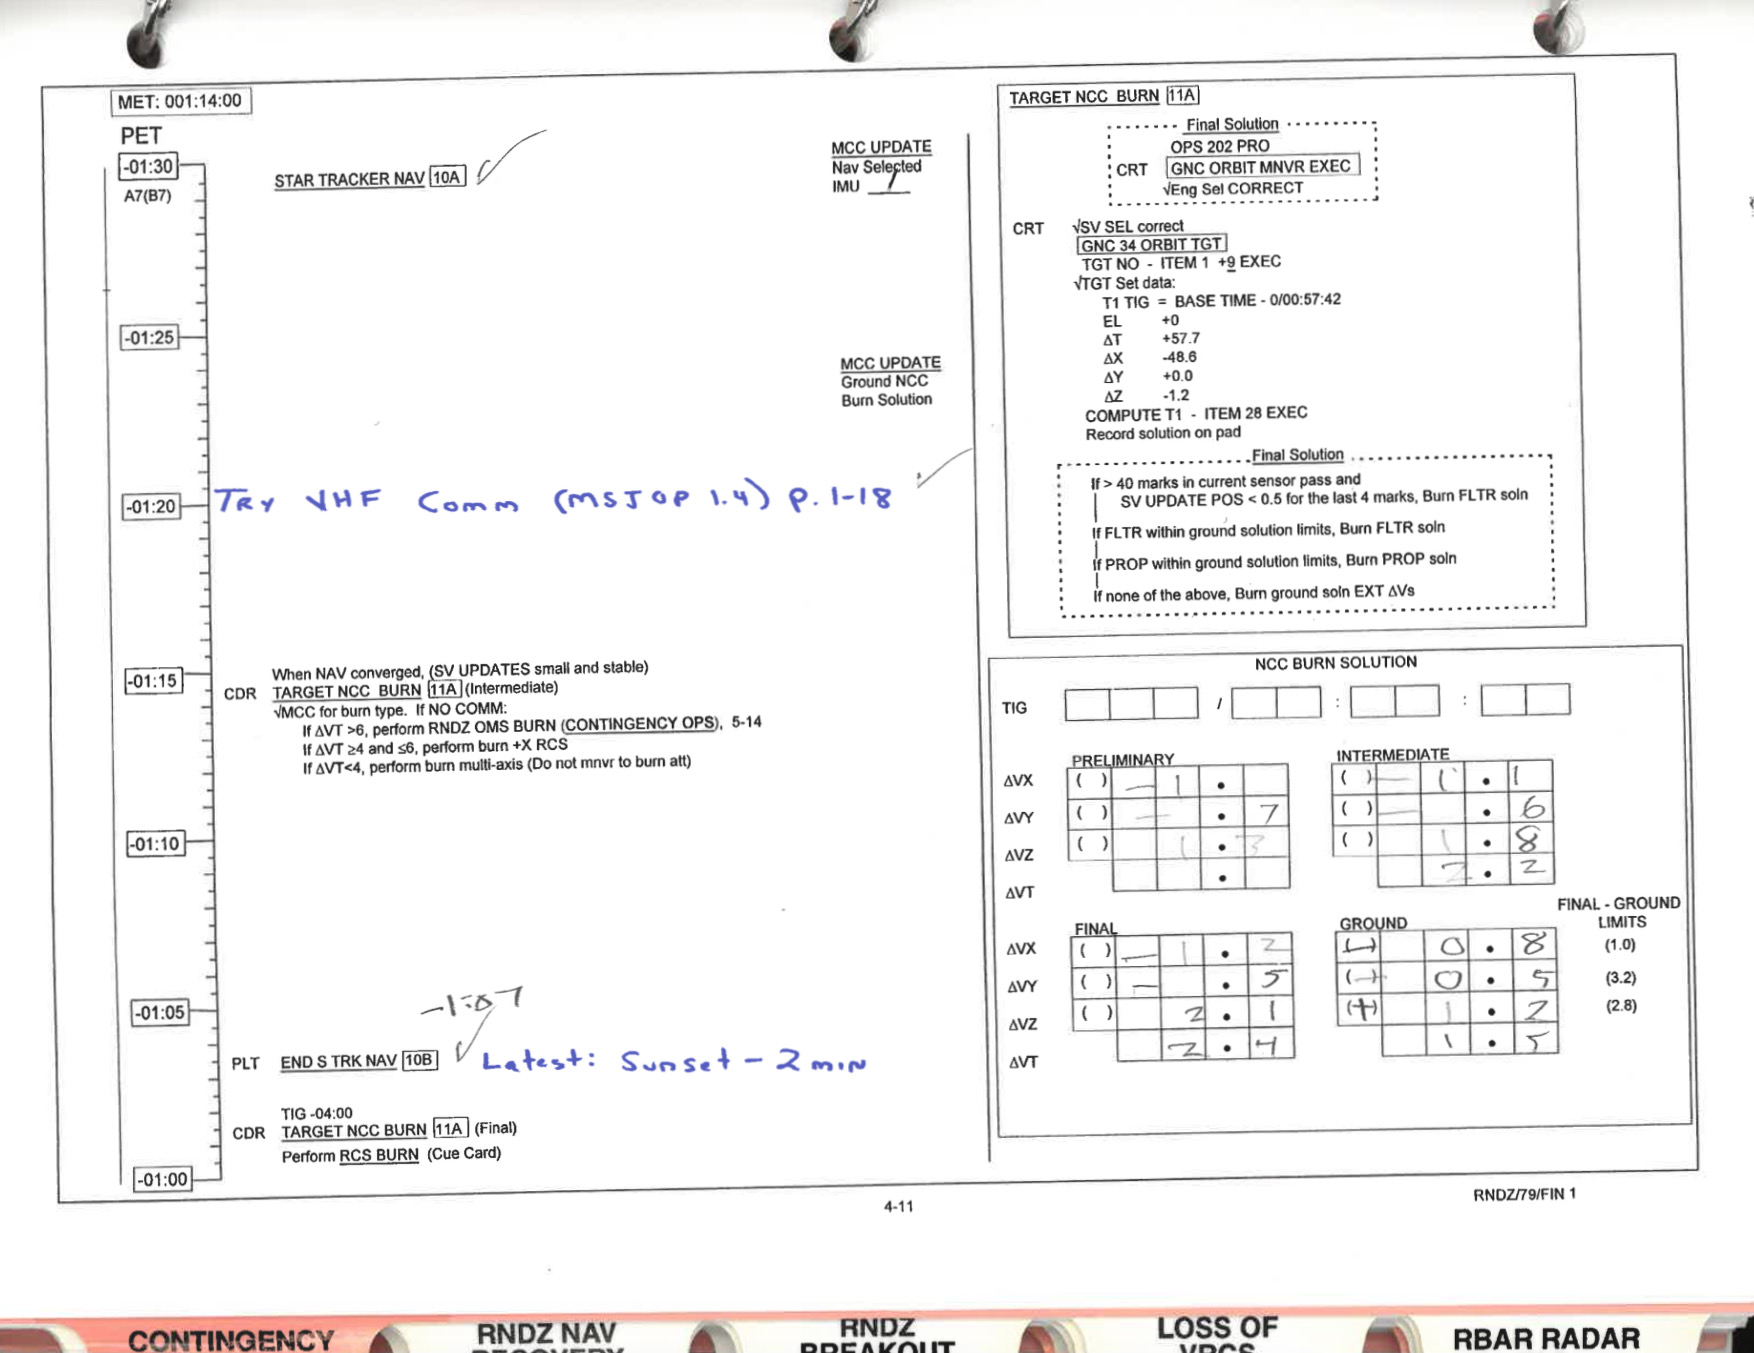 MET: 001:14:00
PET
-01:30
A7(B7)
STAR TRACKER NAV 10A
MCC UPDATE
Nav Selected
IMU 1
-01:25
MCC UPDATE
Ground NCC
Burn Solution
-01:20
TRY VHF Comm (MSJOP 1.4) P. 1-18
-01:15
When NAV converged, (SV UPDATES small and stable)
CDR TARGET NCC BURN 11A (Intermediate)
√MCC for burn type. If NO COMM:
If ΔVT >6, perform RNDZ OMS BURN (CONTINGENCY OPS), 5-14
If ΔVT ≥4 and ≤6, perform burn +X RCS
If ΔVT<4, perform burn multi-axis (Do not mnvr to burn att)
-01:10
-01:05
-1:07
PLT END S TRK NAV 10B Latest: Sunset - 2 min
TIG -04:00
CDR TARGET NCC BURN 11A (Final)
Perform RCS BURN (Cue Card)
-01:00
TARGET NCC BURN 11A
Final Solution
OPS 202 PRO
CRT GNC ORBIT MNVR EXEC
√Eng Sel CORRECT
CRT √SV SEL correct
GNC 34 ORBIT TGT
TGT NO - ITEM 1 +9 EXEC
√TGT Set data:
T1 TIG = BASE TIME - 0/00:57:42
EL +0
ΔT +57.7
ΔX -48.6
ΔY +0.0
ΔZ -1.2
COMPUTE T1 - ITEM 28 EXEC
Record solution on pad
Final Solution
If > 40 marks in current sensor pass and
SV UPDATE POS < 0.5 for the last 4 marks, Burn FLTR soln
If FLTR within ground solution limits, Burn FLTR soln
If PROP within ground solution limits, Burn PROP soln
If none of the above, Burn ground soln EXT ΔVs
NCC BURN SOLUTION
TIG / : :
PRELIMINARY
ΔVX ( ) - 1 .
ΔVY ( ) - . 7
ΔVZ ( ) 1 . 3
ΔVT .
INTERMEDIATE
( ) - 1 . 1
( ) - . 6
( ) 1 . 8
2 . 2
FINAL
ΔVX ( ) - 1 . 2
ΔVY ( ) - . 5
ΔVZ ( ) 2 . 1
ΔVT 2 . 4
GROUND
(-) 0 . 8
(-) 0 . 5
(+) 1 . 2
1 . 5
FINAL - GROUND
LIMITS
(1.0)
(3.2)
(2.8)
4-11
RNDZ/79/FIN 1
CONTINGENCY
RNDZ NAV
RECOVERY
RNDZ
BREAKOUT
LOSS OF
VRCS
RBAR RADAR